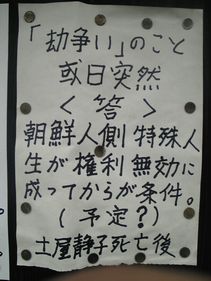 「劫争い」のこと
或日突然
＜答＞
朝鮮人側 特殊人
生が 権利 無効に
成ってからが条件。
(予定？)
土屋静子死亡後